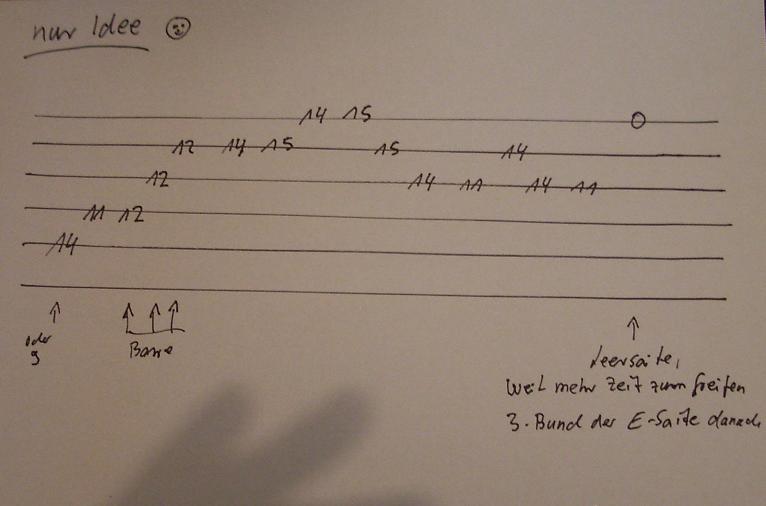 nur Idee
14 15 0
12 14 15 15 14
12 14 11 14 11
11 12
14
oder
9
Barre
Leersaite,
weil mehr Zeit zum Greifen
3. Bund der E-Saite danach